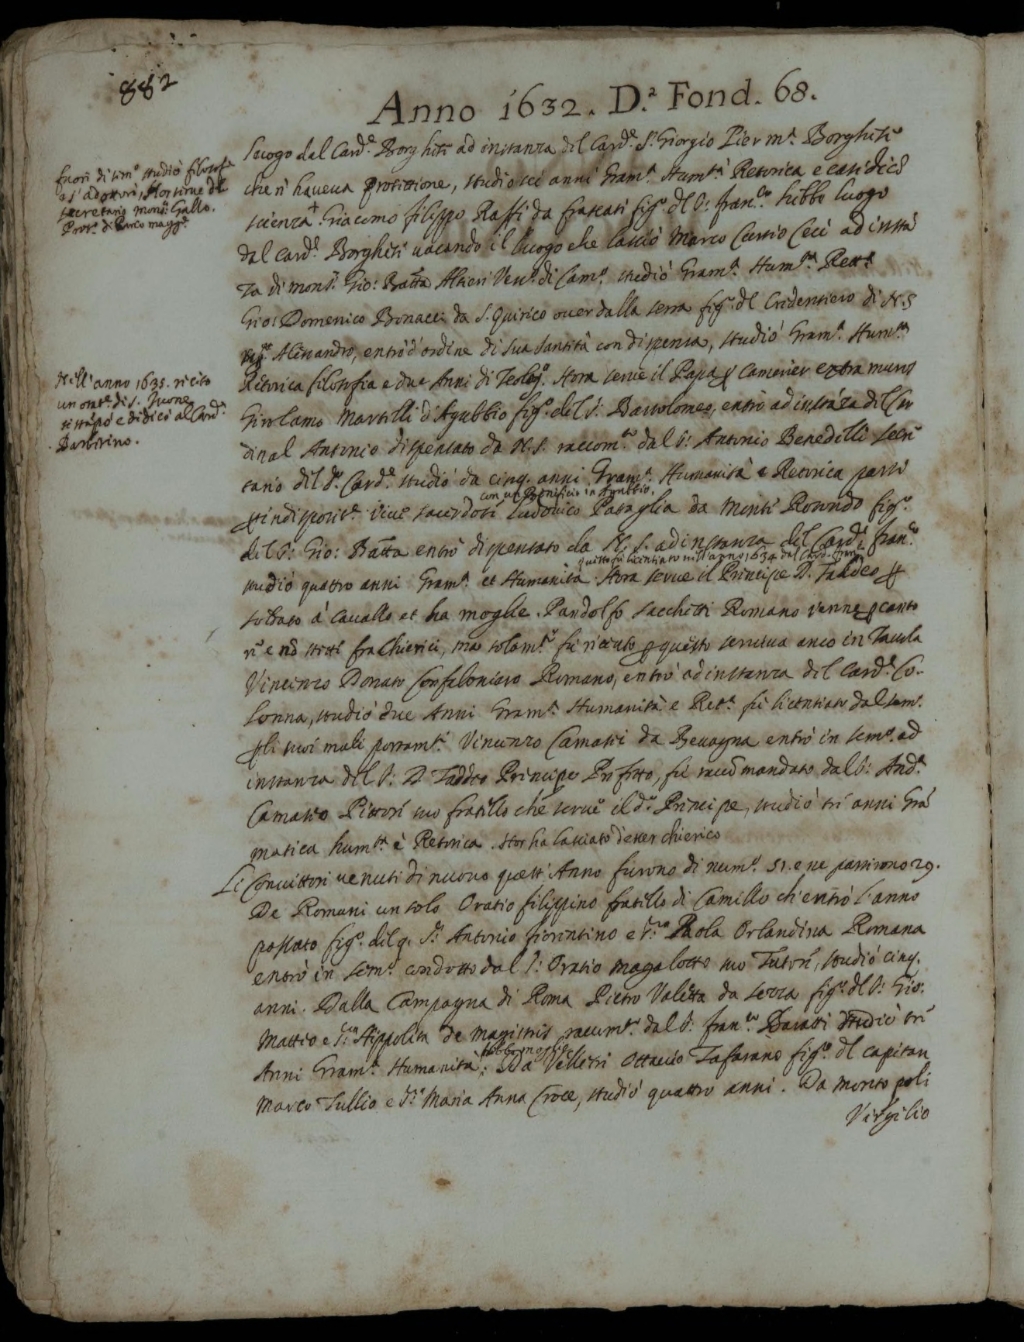 882
Anno 1632. D.ª Fond. 68.
fuori di sem.º studiò filosofi
a s'adottorò, Hor serve di
secretario mons.r Gallo.
luogo dal Card.e Borghesi ad instanza del Card.e S. Giorgio Pier m.ª Borghesi
che n'haveva protettione, studio sei anni Gram.ª Hum.tà Retorica e casi di co
scienza. Giacomo filippo Raffi da frascati fig.º del S: fran.co hebbe luogo
dal Card.e Borghesi vacando il luogo che lasciò Marco Curtio Ceci ad insta
za di mons.r Gio: Batta Altieri Vesc.º di Cam.º studiò Gram.ª Hum.tà Rett.ª
Gio: Domenico Bonacci da S. Quirico over dalla serra fig.º del Credentiero di N.S
Alessandro, entrò d'ordine di sua santità con dispensa, studiò Gram.ª Hum.tà
Nell'anno 1635. recitò
un orat.e di S. Juone
stampò e dedicò al Card.e
Barberino.
Retorica filosofia e due Anni di Teolog.ª Hora serve il Papa p Camerier extra muros
Girolamo Martelli d'Agubbio fig.º del S: Bartolomeo, entrò ad instaza del Car
dinal Antonio dispensato da N.S. raccom.to dal S: Antonio Benedelli secre
tario del d.º Card.e studiò da cinq. anni Gram.ª Humanità e Retorica partì
con un Benificio in Agubbio.
p indisposit.e vive sacerdote Ludovico Pasaglia da Monte Rotondo fig.º
del S: Gio: Batta entrò dispensato da N.S. ad instanza del Card.l fran.º
questo fu licentiato nell'anno 1634 dal Card.
studiò quattro anni Gram.ª et Humanità. Hora serve il Principe D. Taddeo p
soldato à cavallo et ha moglie. Pandolfo Sacchetti Romano venne p canto
re e nō stette fra Chierici, ma solam.te fu ricevuto p questo serviva anco in Tavola
Vincenzo Donato Confaloniero Romano, entrò ad instanza del Card.e Co-
lonna, studiò due Anni Gram.ª Humanità e Ret.ª fù licentiato dal sem.º
p li suoi mali portam.ti Vincenzo Camassei da Bevagna entrò in sem.º ad
instanza del S: D. Taddeo Principe Prefetto, fù raccōmandato dal S: And.ª
Camassei Pittore suo fratello che serve il d.º Principe, studiò tre anni Gra
matica hum.tà è Retorica. Hor ha lasciato d'esser chierico
Li Convittori venuti di nuovo quest'Anno furono di num.º 31. e ne partirono 29.
De Romani un solo Oratio filippino fratello di Camillo ch'entrò l'anno
passato fig.º del q. S.r Antonio fiorentino e S.ra Paola Orlandina Romana
entrò in sem.º condotto dal S: Oratio magalotto suo Tutore, studiò cinq.
anni. Dalla Campagna di Roma Pietro Valetta da sezza fig.º del S: Gio:
Matteo e S.ra Hippolita de magistris racum.to dal S: fran.co Baratti studiò tre
Anni Gram.ª Humanità. Da Velletri Ottavio Tafarano fig.º del capitan
Marco Tullio e S.ª Maria Anna Croce, studiò quattro anni. Da monto poli
Virgilio